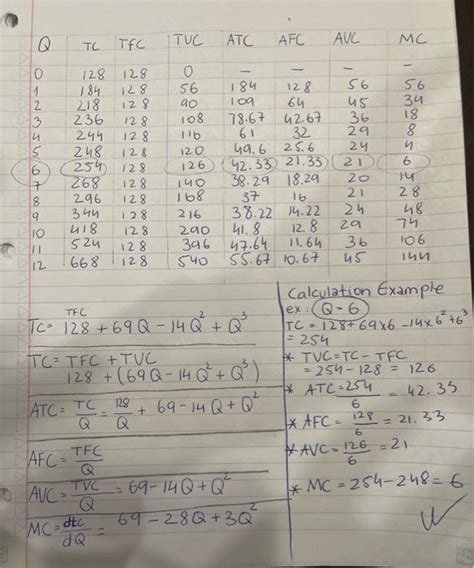 Q TC TFC TVC ATC AFC AVC MC
0 128 128 0 – – – –
1 184 128 56 184 128 56 56
2 218 128 90 109 64 45 34
3 236 128 108 78.67 42.67 36 18
4 244 128 116 61 32 29 8
5 248 128 120 49.6 25.6 24 4
6 254 128 126 42.33 21.33 21 6
7 268 128 140 38.29 18.29 20 14
8 296 128 168 37 16 21 28
9 344 128 216 38.22 14.22 24 48
10 418 128 290 41.8 12.8 29 74
11 524 128 396 47.64 11.64 36 106
12 668 128 540 55.67 10.67 45 144
TFC
TC= 128 + 69Q - 14Q² + Q³
TC= TFC + TVC
128 + (69Q - 14Q² + Q³)
ATC= TC/Q = 128/Q + 69-14Q+Q²
AFC= TFC/Q
AVC= TVC/Q = 69-14Q+Q²
MC= dtc/dQ = 69-28Q+3Q²
Calculation Example
ex: Q=6
TC = 128+69×6-14×6²+6³
= 254
* TVC=TC-TFC
= 254-128 = 126
* ATC=254/6 = 42.33
* AFC= 128/6 = 21.33
* AVC= 126/6 = 21
* MC= 254-248= 6